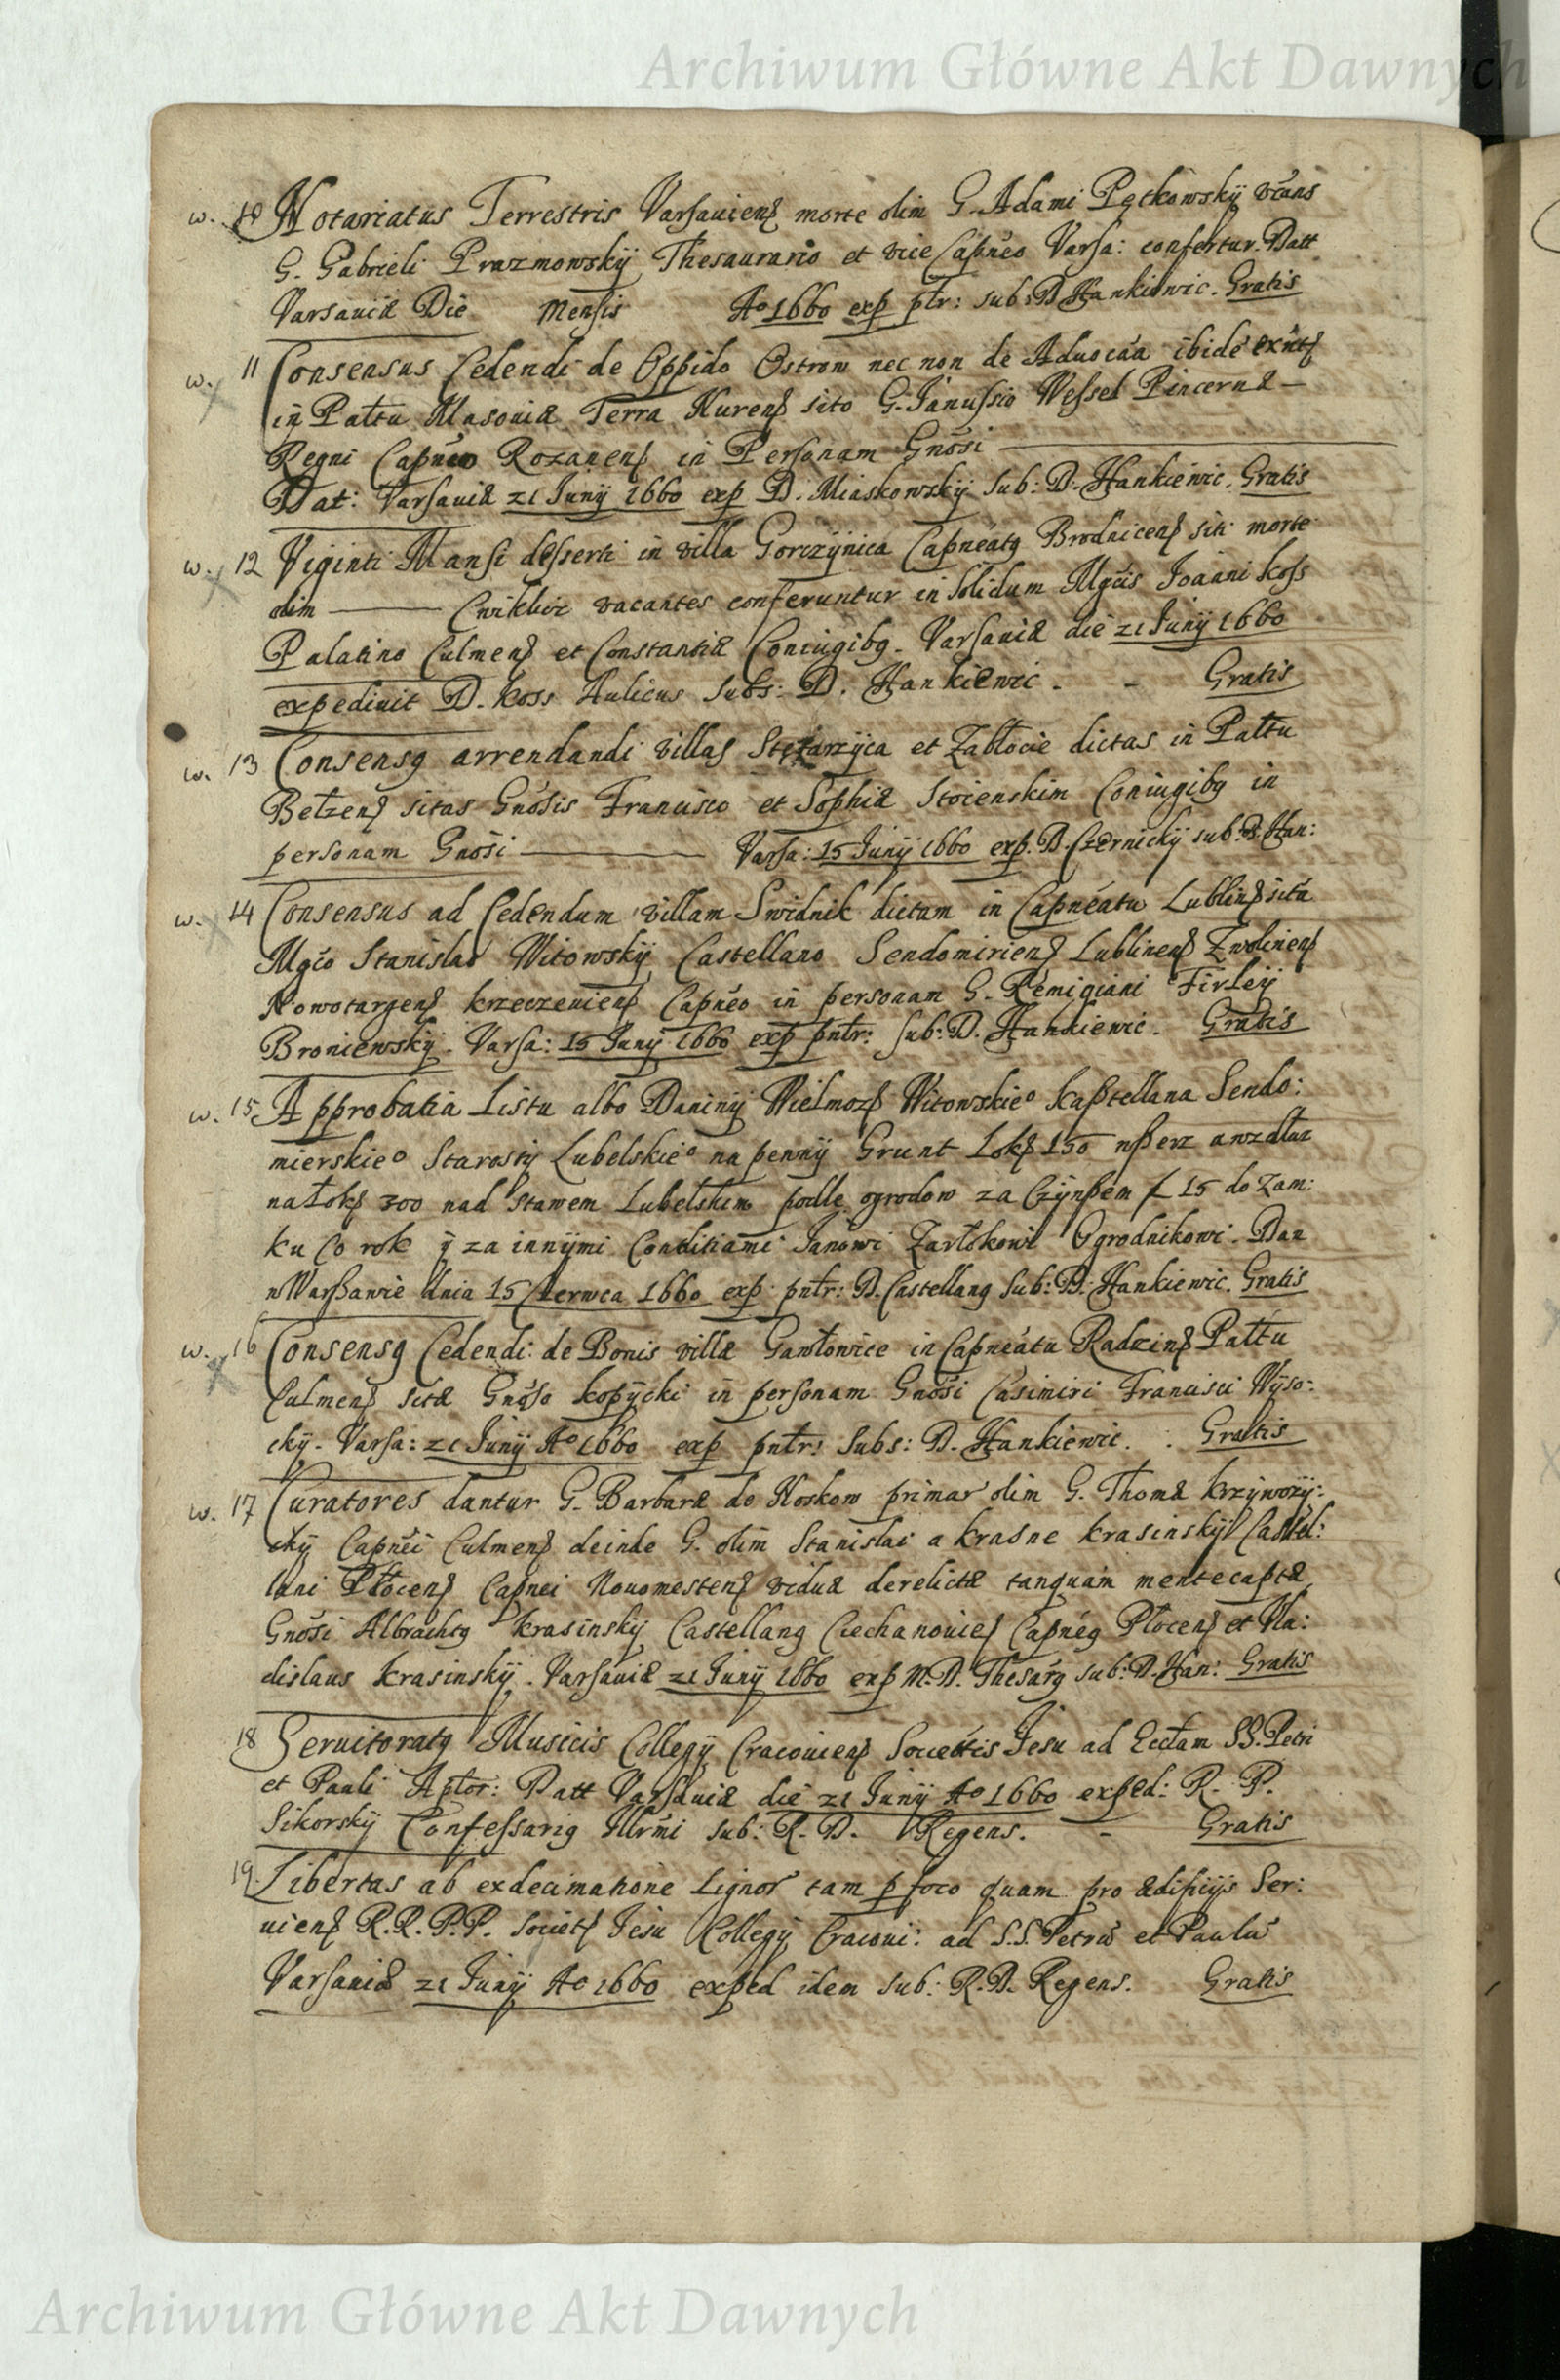 Archiwum Główne Akt Dawnych
w. 10 Notariatus Terrestris Varsauiens morte olim G. Adami Pętkowskÿ vcans
G. Gabrieli Prazmowskÿ Thesaurario et vice Capneo Varsa: confertur. Datt
Varsauiæ Die Mensis Aº 1660 exp ptr: sub: D Hankiewic. Gratis
w. 11 Consensus Cedendi de Oppido Ostrow nec non de Aduocãa ibidẽ exnts
in Pałtu Masouiæ Terra Nurens sito G. Janussio Wessel Pincernæ —
Regni Capneo Rozanens in Personam Gnosi
Dat: Varsauiæ 21 Junÿ 1660 exp D. Miaskowskÿ Sub: D. Hankiewic. Gratis
w. 12 Viginti Mansi desserti in villa Gorczÿnica Capneatq Brodnicens siti morte
olim — Cwiklicz vacantes conferuntur in solidum Mgcis Joanni Koss
Palatino Culmens et Constantiæ Coniugibq. Varsauiæ die 21 Junÿ 1660
expediuit D. Koss Aulicus Subs: D. Hankiewic. - Gratis
w. 13 Consensq arrendandi villas Stężarzÿca et Zabłocie dictas in Pałtu
Bełzens sitas Gnosis Francisco et Sophiæ Stoienskim Coniugibq in
personam Gnosi — Varsa: 15 Junÿ 1660 exp. D. Czernickÿ sub: D. Han:
w. 14 Consensus ad Cedendum villam Swidnik dictam in Capneatu Lublins sitã
Mgco Stanislao Witowskÿ Castellano Sendomiriens Lublinens Zwolinens
Nowotargens Krzeczeuiens Capneo in personam G. Remigiani Firleÿ
Broniewskÿ. Varsa: 15 Junÿ 1660 exp pntr: sub: D. Hankiewic. Gratis
w. 15 Approbatia Listu albo Daninÿ Wielmozs Witowskieº Kasztellana Sendo:
mierskieº Starostÿ Lubelskieº na pewnÿ Grunt Loks 150 wszerz a wzdłuz
na łoks 300 nad Stawem Lubelskim podle ogrodow za Czÿnszem f 15 do Zam:
ku Co rok ÿ za innÿmi Conditiami Janowi Zarłokowi Ogrodnikowi. Dan
w Warszawie dnia 15 Czerwca 1660 exp pntr: D. Castellanq Sub: D. Hankiewic. Gratis
w. 16 Consensq Cedendi de Bonis villæ Gawłowice in Capneatu Radzins Pałtu
Culmens sitæ Gnoso Kopÿcki in personam Gnosi Casimiri Francisci Wÿso:
ckÿ. Varsa: 21 Junÿ Aº 1660 exp pntr: Subs: D. Hankiewic. Gratis
w. 17 Curatores dantur G. Barbaræ de Noskow primar olim G. Thomæ Krzÿwozÿ:
ckÿ Capnei Culmens deinde G. olim Stanislai a Krasne Krasinskÿ Castel:
lani Płocens Capnei Nouomestens viduæ derelictæ tanquam mentecaptæ
Gnosi Albrachtq Krasinskÿ Castellanq Ciechanouies Capneq Płocens et Vla:
dislaus Krasinskÿ. Varsauiæ 21 Junÿ 1660 exp M. D. Thesarq sub: D. Han: Gratis
18 Seruitoratq Musicis Collegÿ Cracouiens Societtis Jesu ad Eccłam SS. Petri
et Pauli Aptor: Datt Varsauiæ die 21 Junÿ Aº 1660 exped: R. P.
Sikorskÿ Confessariq Illrmi sub: R. D. Regens. - Gratis
19. Libertas ab exdecimatione Lignor tam p foco quam pro ædificijs Ser:
uiens R. R. P. P. Societs Jesu Collegÿ Cracoui: ad S. S. Petrũ et Paulũ
Varsauiæ 21 Junÿ Aº 1660 exped idem sub: R. D. Regens. Gratis
Archiwum Główne Akt Dawnych